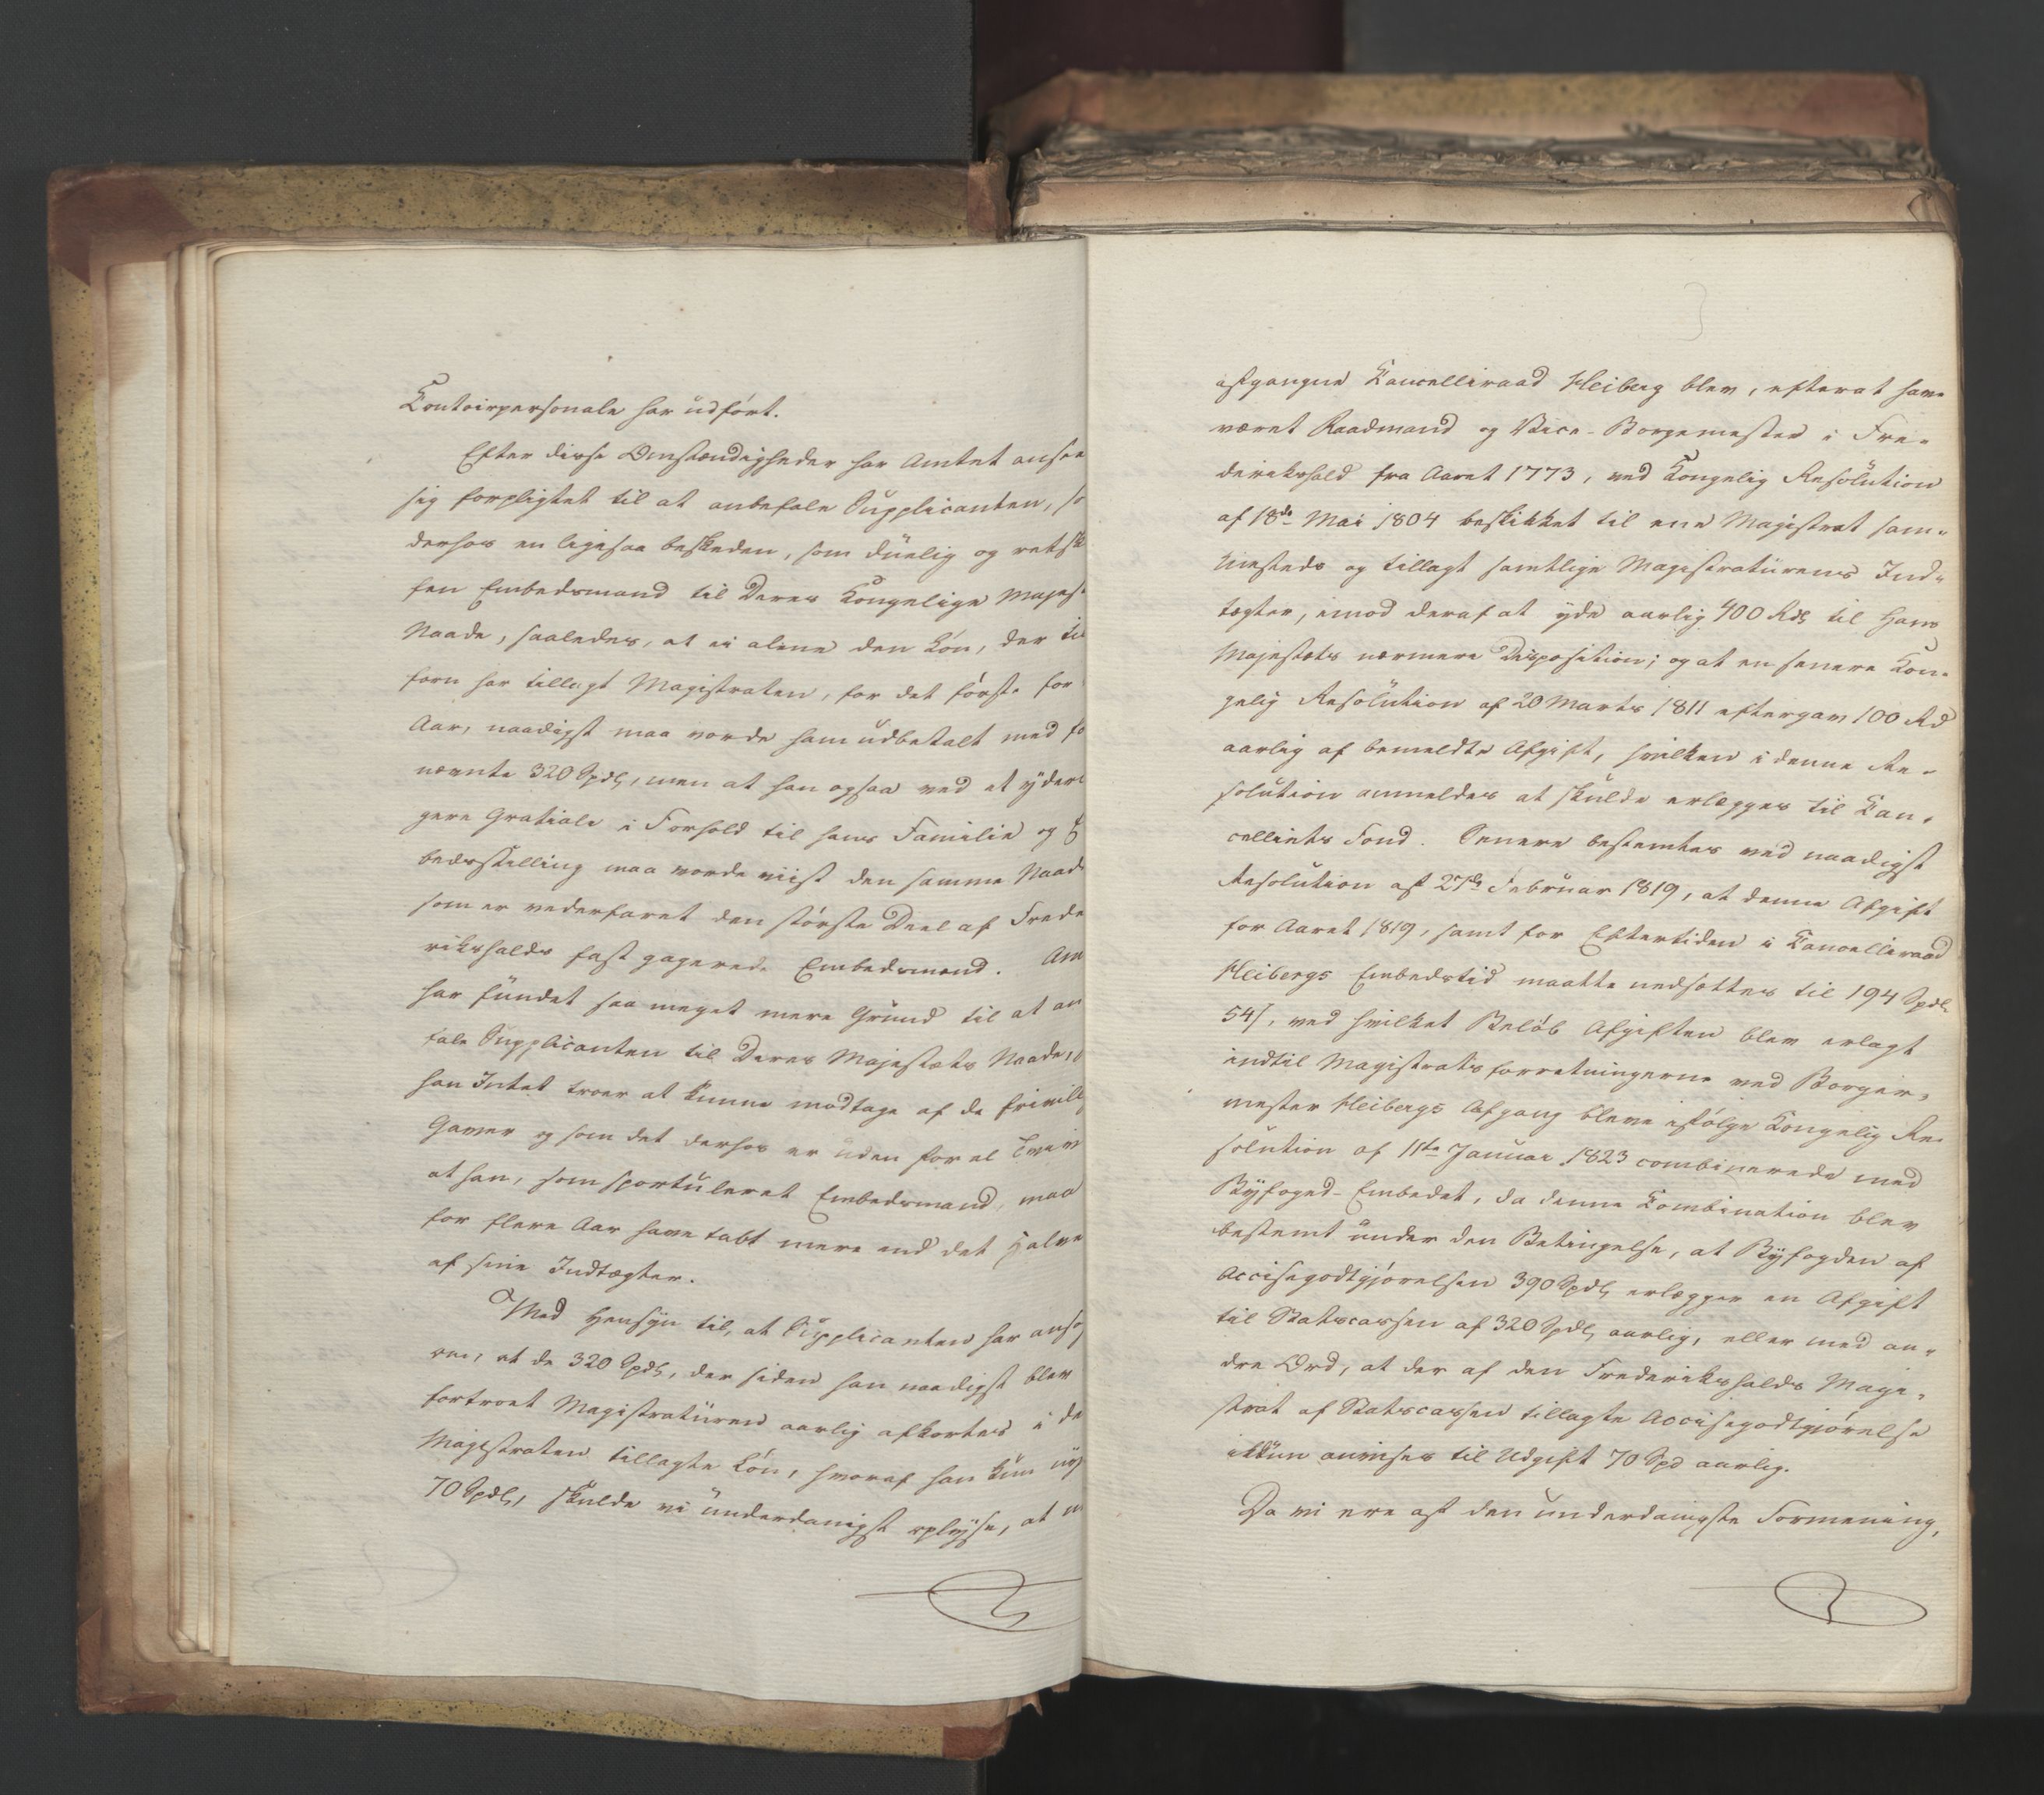 Contoirpersonale har udført.
Efter disse Omstændigheder har Amtet ansee
sig forpligtet til at anbefale Supplicanten, so
derhos en ligesaa beskeden, som duelig og retsk
fen Embedsmand til Deres Kongelige Majes
Naade, saaledes, at ei alene den Løn, der til
forn har tillagt Magistraten, for det første for
Aar, naadigst maa vorde ham udbetalt med fo
nævnte 320 Spdlr, men at han ogsaa ved et yder
gere Gratiale i Forhold til hans Familie og E
bedsstilling maa vorde viist den samme Naade
som er vederfaret den største Deel af Frede
rikshalds fast gagerede Embedsmænd. Am
har fundet saa meget mere Grund til at an
fale Supplicanten til Deres Majestæts Naade,
han Intet troer at kunne modtage af de frivill
Gaver og som det derhos er uden for al Tvivl
at han, som sportuleret Embedsmand, maa
for flere Aar have tabt mere end det Halve
af sine Indtægter.
Med Hensyn til, at Supplicanten har ansø
om, at de 320 Spdlr, der siden han naadigst blev
fortroet Magistraturen aarlig afkortes i de
Magistraten tillagte Løn, hvoraf han kun
70 Spdlr, skulde vi underdanigst oplyse, at
afgangne Kancelliraad Heiberg blev, efterat have
været Raadmand og Vice-Borgemester i Fre-
derikshald fra Aaret 1773, ved Kongelig Resolution
af 18de Mai 1804 beskikket til ene Magistrat sam-
mesteds og tillagt samtlige Magistraturens Ind-
tægter, imod deraf at yde aarlig 400 Rdlr til Hans
Majestæts nærmere Disposition; og at en senere Kon-
gelig Resolution af 20 Marts 1811 eftergav 100 Rd
aarlig af bemeldte Afgift, hvilken i denne Re-
solution anmeldes at skulde erlægges til Kan-
celliets Fond. Senere bestemtes ved naadigst
Resolution af 27de Februar 1819, at denne Afgift
for Aaret 1819, samt for Eftertiden i Kancelliraad
Heibergs Embedstid maatte nedsættes til 194 Spdlr
54 s, ved hvilket Beløb Afgiften blev erlagt
indtil Magistratsforretningerne ved Borger-
mester Heibergs Afgang bleve ifølge Kongelig Re-
solution af 11te Januar 1823 combinerede med
Byfoged-Embedet, da denne Kombination blev
bestemt under den Betingelse, at Byfogden af
Accisegodtgjørelsen 390 Spdlr erlægger en Afgift
til Statscassen af 320 Spdlr aarlig, eller med an-
dre Ord, at der af den Frederikshalds Magi-
strat af Statscassen tillagte Accisegodtgjørelse
ikkun anvises til Udgift 70 Spd aarlig.
Da vi ere af den underdanigste Formening,